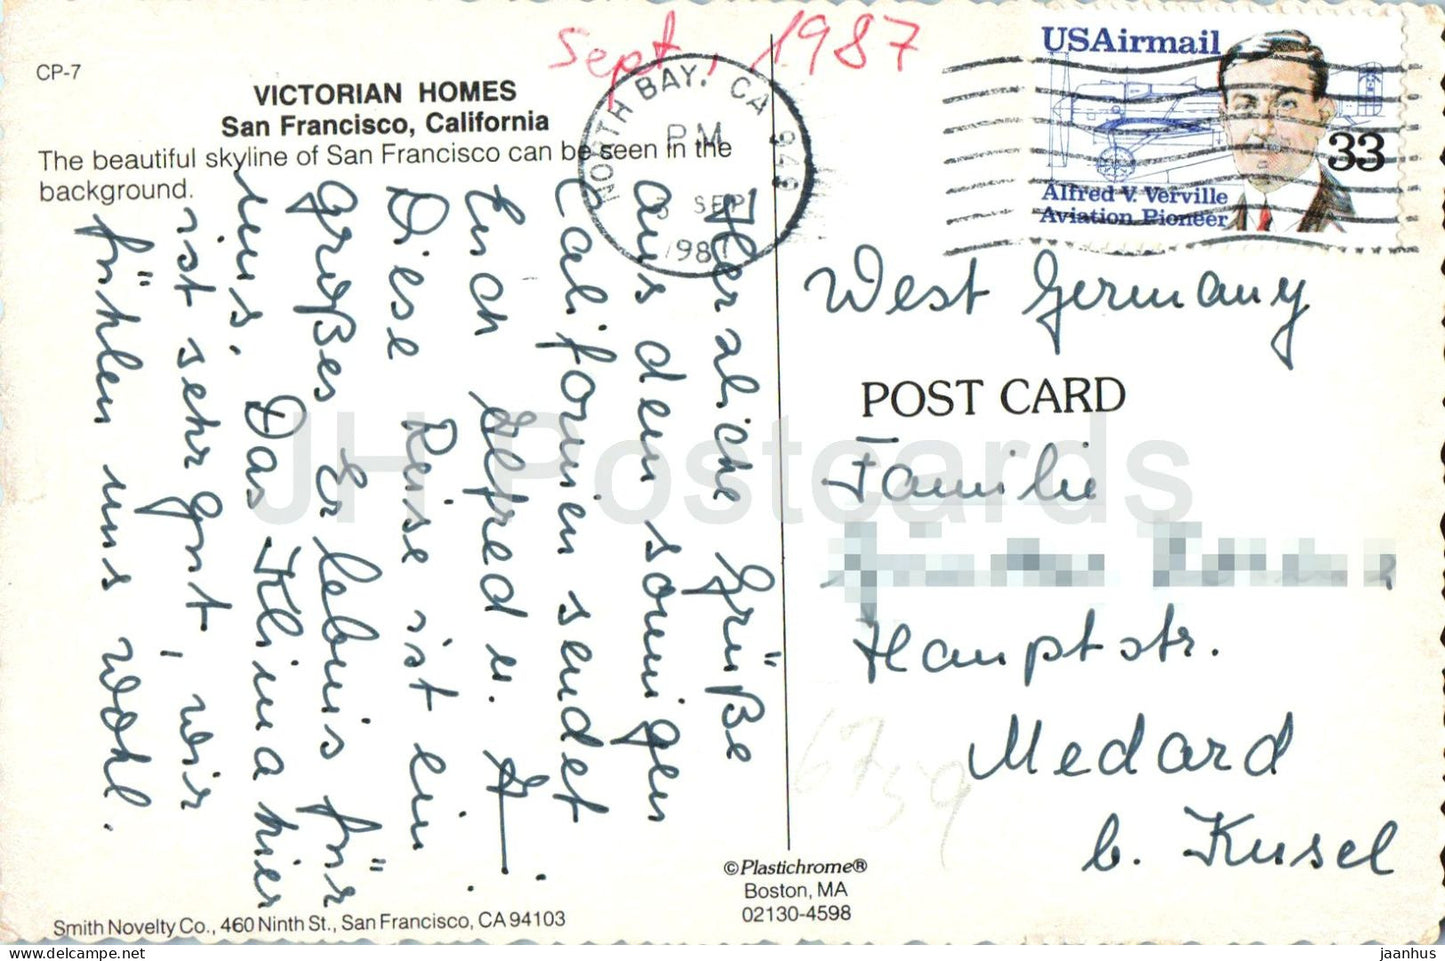 Sept, 1987
CP-7
VICTORIAN HOMES
San Francisco, California
The beautiful skyline of San Francisco can be seen in the
background.
NORTH BAY, CA 949
PM
SEP
1987
USAirmail
33
Alfred V. Verville
Aviation Pioneer
Herzliche Grüße
aus dem sonnigen
Californien sendet
Euch Alfred u.
Diese Reise ist ein
großes Erlebnis für
uns. Das Klima hier
ist sehr gut, wir
fühlen uns wohl.
West Germany
POST CARD
Familie
Hauptstr.
Medard
b. Kusel
6759
©Plastichrome®
Boston, MA
02130-4598
Smith Novelty Co., 460 Ninth St., San Francisco, CA 94103
JH Postcards
HipPostcard.com | jaanhus